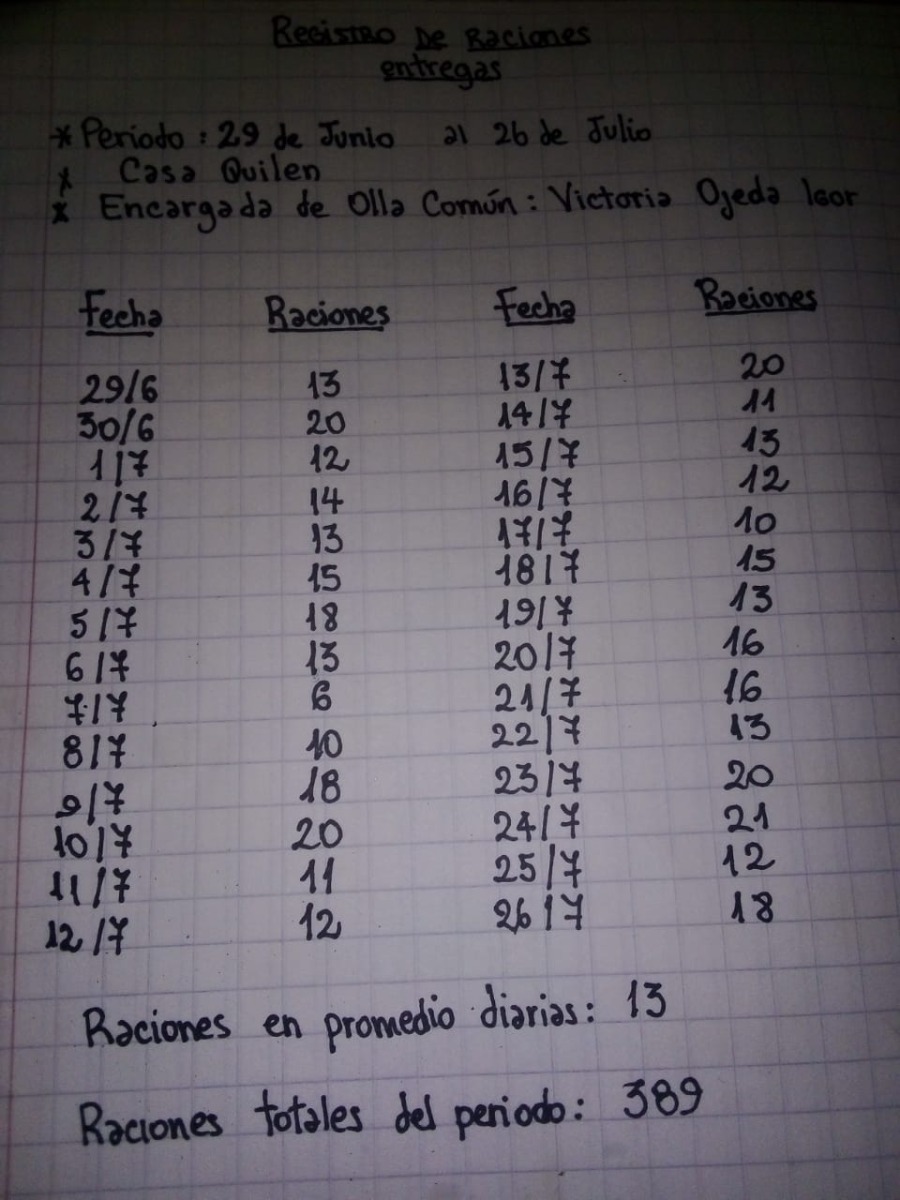 Registro De Raciones
entregas
* Periodo : 29 de Junio al 26 de Julio
* Casa Quilen
* Encargada de Olla Común : Victoria Ojeda Igor
Fecha Raciones Fecha Raciones
29/6 13 13/7 20
30/6 20 14/7 11
1/7 12 15/7 13
2/7 14 16/7 12
3/7 13 17/7 10
4/7 15 18/7 15
5/7 18 19/7 13
6/7 13 20/7 16
7/7 6 21/7 16
8/7 10 22/7 13
9/7 18 23/7 20
10/7 20 24/7 21
11/7 11 25/7 12
12/7 12 26/7 18
Raciones en promedio diarias : 13
Raciones totales del periodo : 389